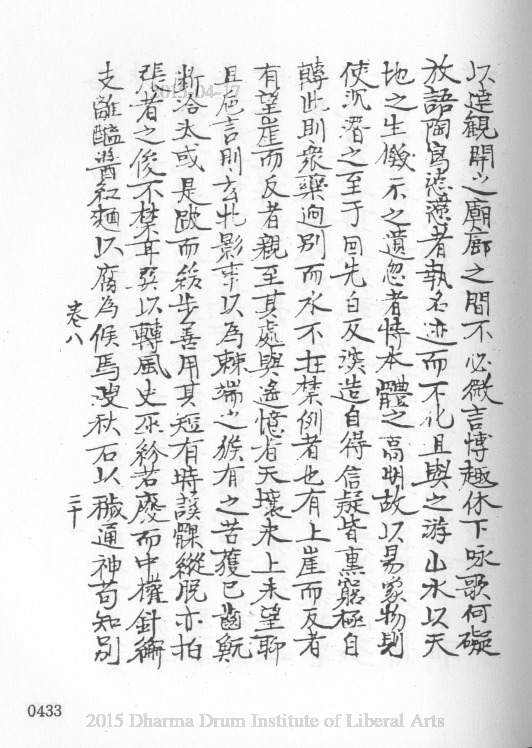 以達觀開之廟廊之間不必微言博趣休下咏歌何礙
放語陶寫憑者執名迹而不化且與之游山水以天
地之生儆示之遺忽者恃本體之高明故以易象物
使沉潛之至于回先自反深造自得信疑皆熏窮極自
轉此則衆藥迥別而水不在禁例者也有上崖而反者
有望崖而反者親至其處與遙憶者天壤未上未望聊
且巵言則玄牝影事以為棘端之猴有之苦獲已齒
斷冷汰或是跛而緩步善用其短有時謑髁縱脫亦拍
張者之俊不禁耳要以轉風史巫紛若廢而中權針
支離醯醬紅麵以腐為候馬溲秋石以穢通神苟知別
卷八
二十
0433
2015-04-17
2015 Dharma Drum Institute of Liberal Arts